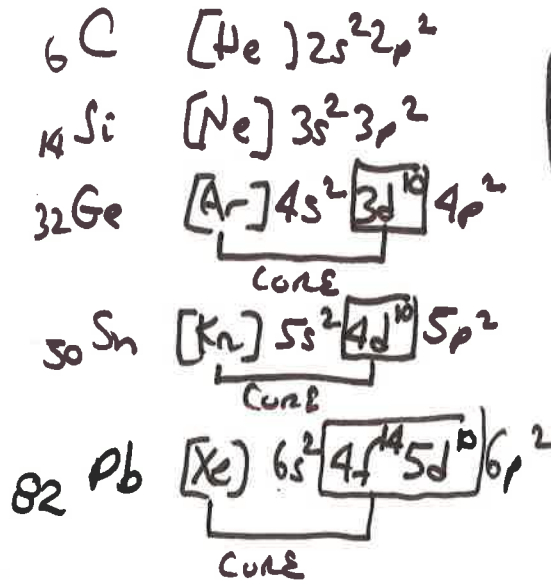 ₆C [He] 2s²2p²
₁₄Si [Ne] 3s²3p²
₃₂Ge [Ar] 4s² 3d¹⁰ 4p²
CORE
₅₀Sn [Kr] 5s² 4d¹⁰ 5p²
CORE
₈₂Pb [Xe] 6s² 4f¹⁴5d¹⁰ 6p²
CORE